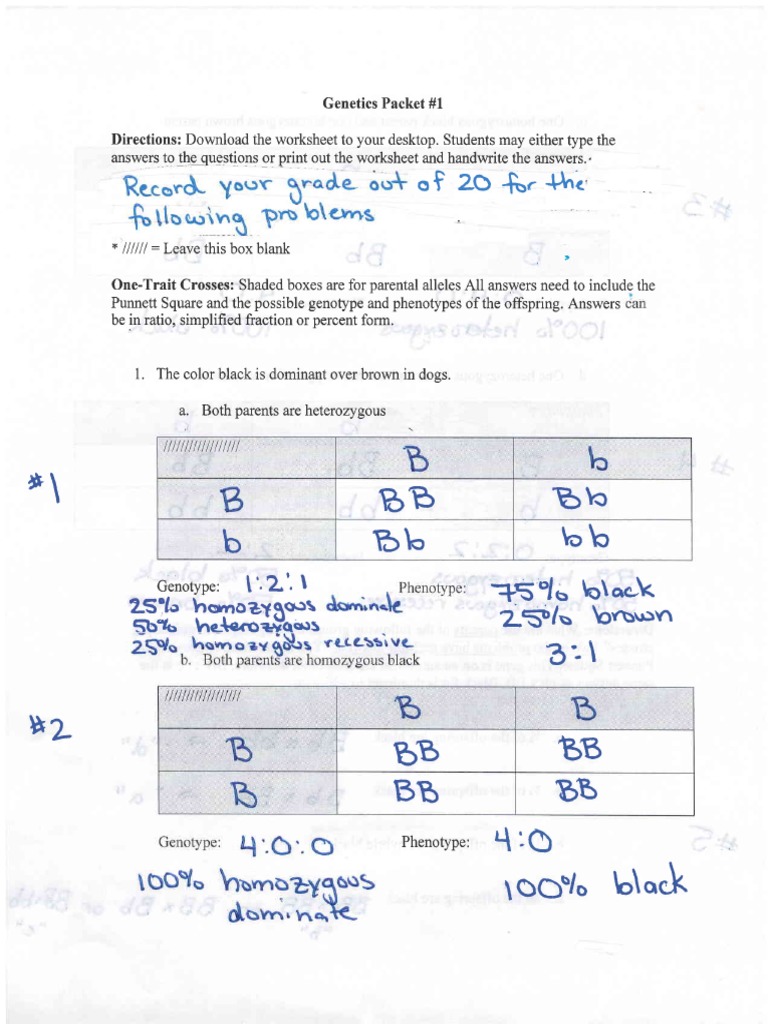 Genetics Packet #1
Directions: Download the worksheet to your desktop. Students may either type the
answers to the questions or print out the worksheet and handwrite the answers.
Record your grade out of 20 for the
following problems
* ////// = Leave this box blank
One-Trait Crosses: Shaded boxes are for parental alleles All answers need to include the
Punnett Square and the possible genotype and phenotypes of the offspring. Answers can
be in ratio, simplified fraction or percent form.
1. The color black is dominant over brown in dogs.
a. Both parents are heterozygous
#1
/////////////////// B b
B BB Bb
b Bb bb
Genotype: 1:2:1 Phenotype: 75% black
25% homozygous dominate 25% brown
50% heterozygous
25% homozygous recessive 3:1
b. Both parents are homozygous black
#2
/////////////////// B B
B BB BB
B BB BB
Genotype: 4:0:0 Phenotype: 4:0
100% homozygous 100% black
dominate